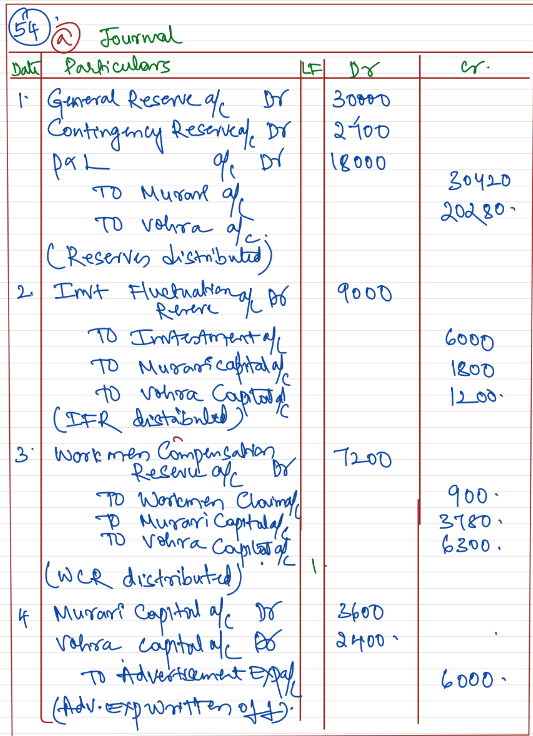 54. (a) Journal
Date Particulars LF Dr Cr.
1. General Reserve a/c Dr 30000
Contingency Reserve a/c Dr 2700
P & L a/c Dr 18000
TO Murari a/c 30420
TO Vohra a/c. 20280.
(Reserves distributed)
2. Invt Fluctuation a/c Dr 9000
Reserve
TO Investment a/c 6000
TO Murari capital a/c 1800
TO Vohra Capital a/c 1200.
(IFR distributed)
3. Workmen Compensation
Reserve a/c Dr 7200
TO Workmen Claim a/c 900.
TO Murari Capital a/c 3780.
TO Vohra Capital a/c 6300.
(WCR distributed)
4 Murari Capital a/c Dr 3600
Vohra capital a/c Dr 2400.
TO Advertisement Exp a/c 6000.
(Adv. Exp written off).